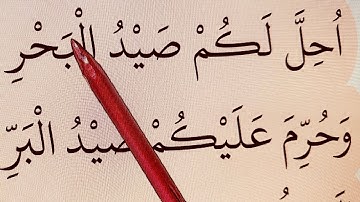 اُحِلَّ لَكُمْ صَيْدُ الْبَحْرِ
وَحُرِّمَ عَلَيْكُمْ صَيْدُ الْبَرِّ